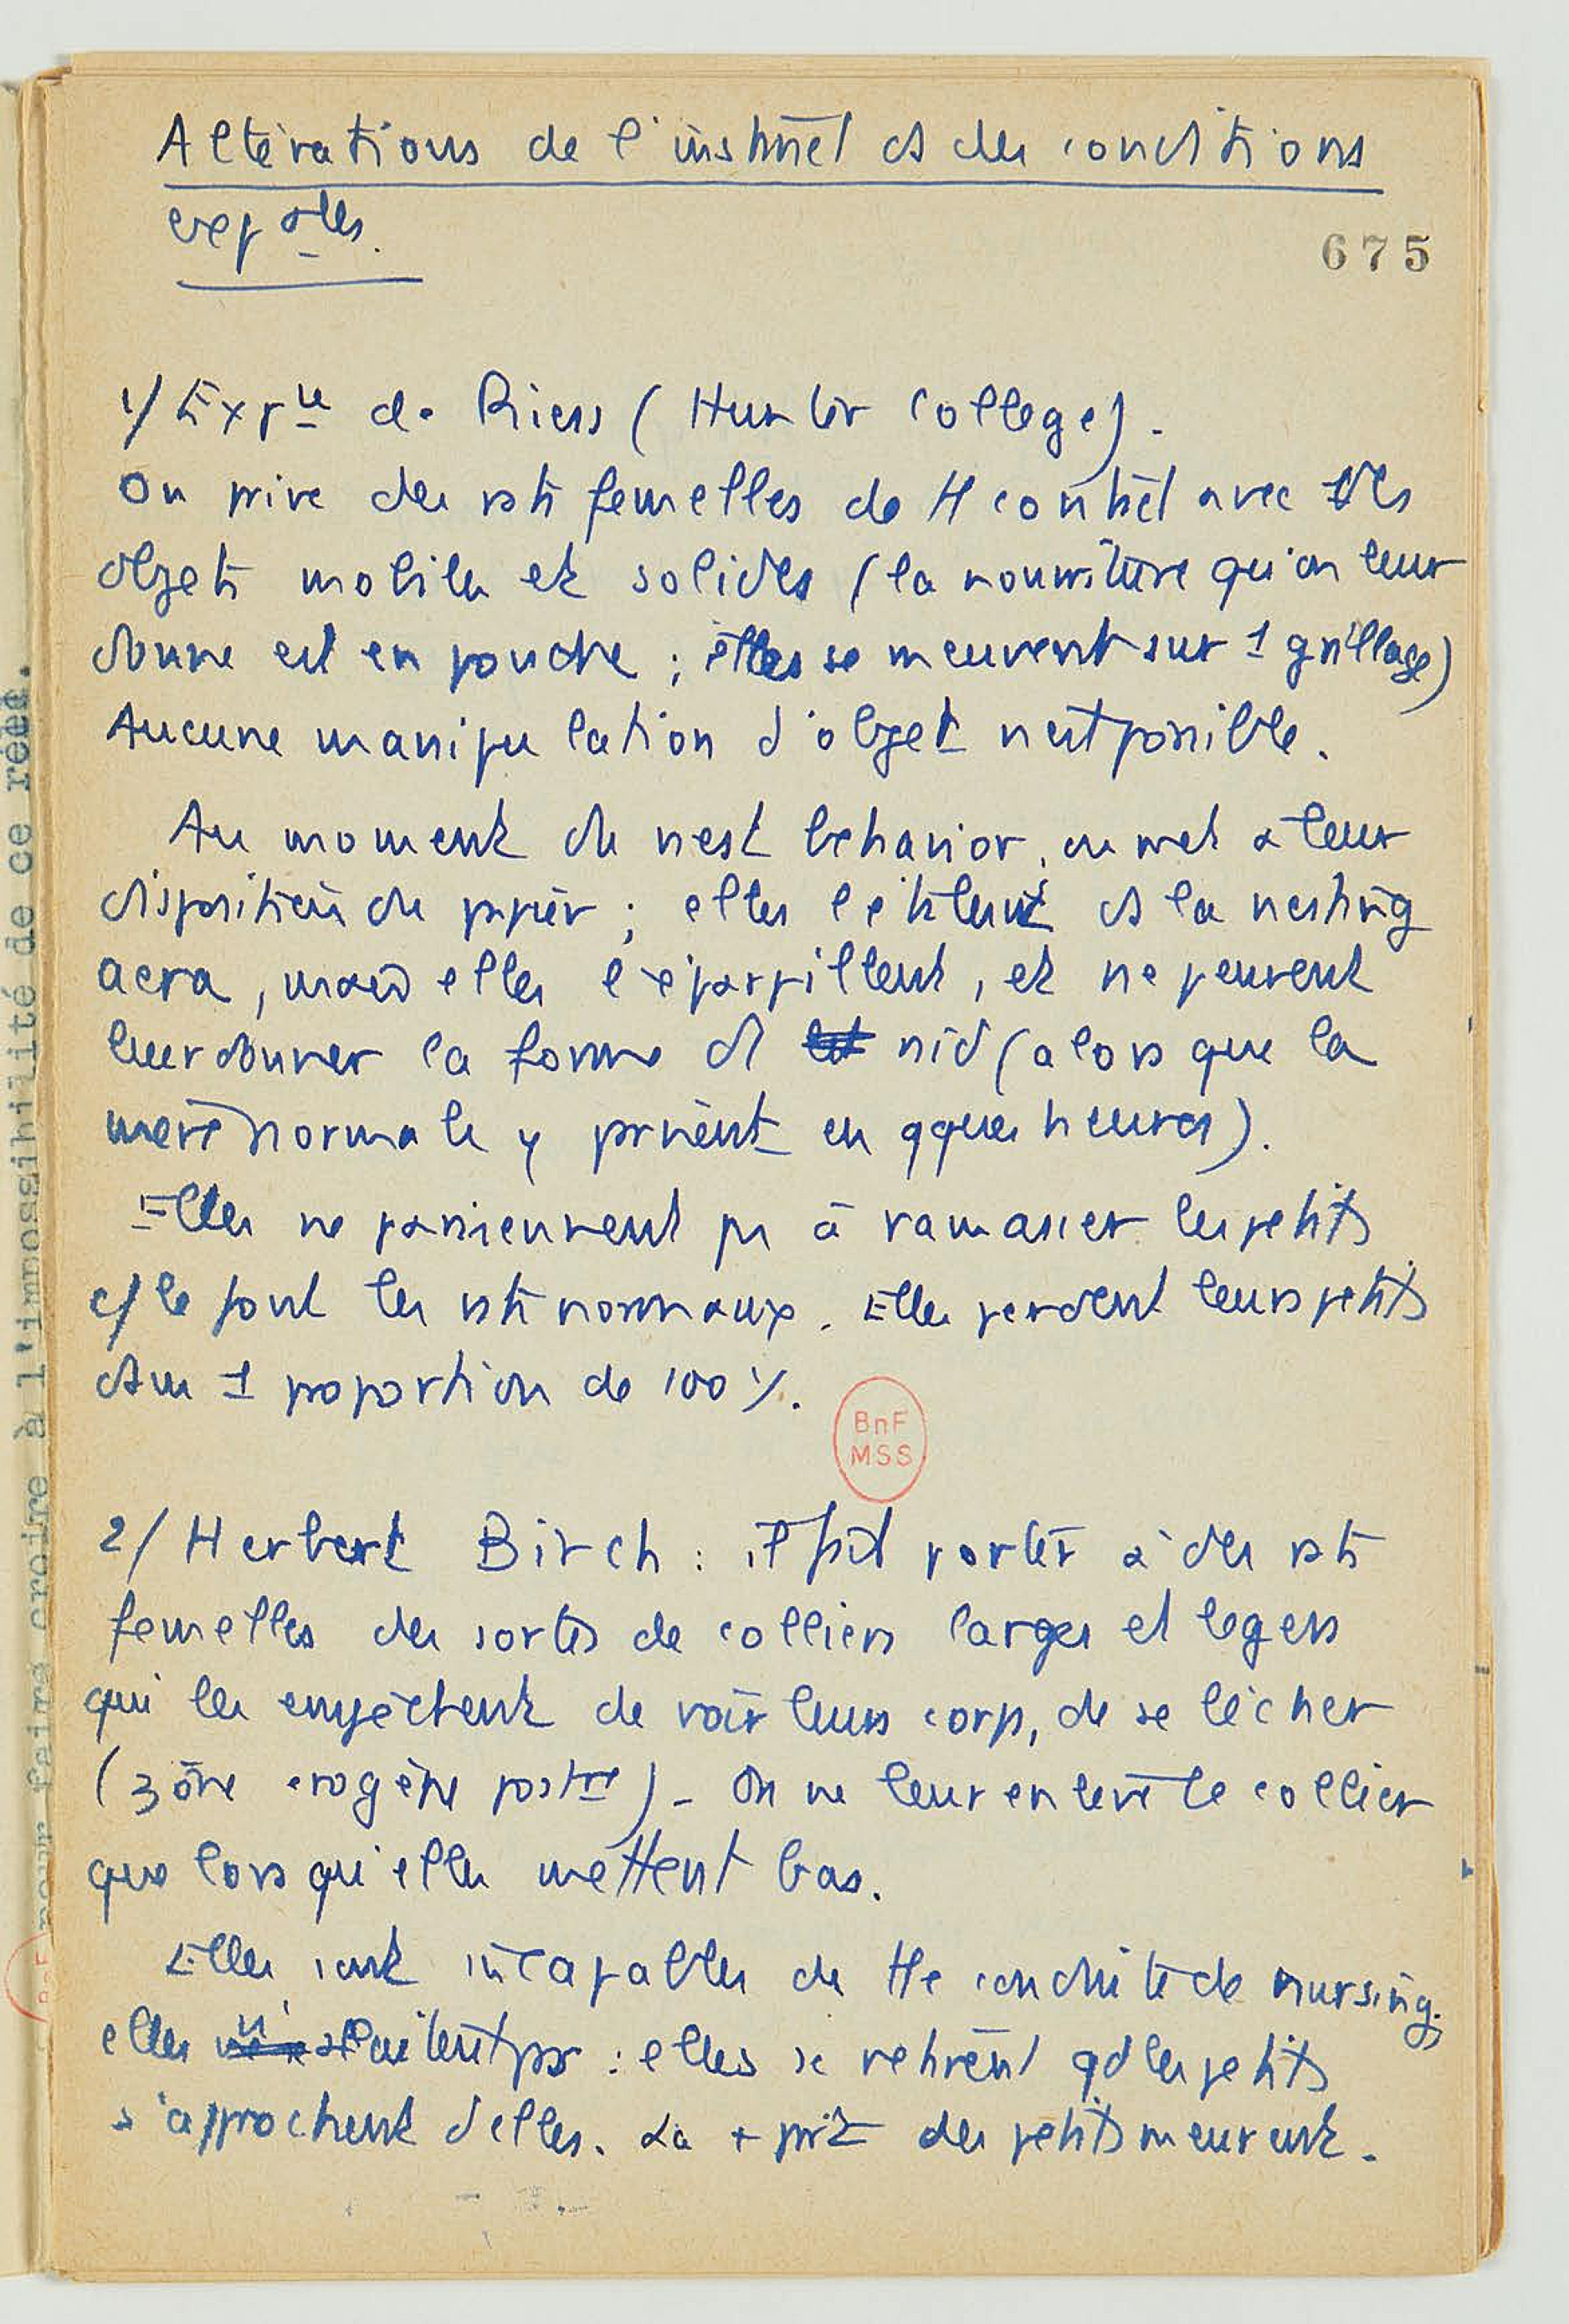 Altérations de l'instinct ds des conditions
exp ales.
675
1/ Expce de Riess (Hunter College).
On prive des rats femelles de tt contact avec des
objets mobiles et solides (la nourriture qu'on leur
donne est en poudre ; elles se meuvent sur 1 grillage)
Aucune manipulation d'objet n'est possible.
Au moment du nest behavior, on met à leur
disposition du papier ; elles l'étalent ds la nesting
aera, mais elles l'éparpillent, et ne peuvent
leur donner la forme d' nid (alors que la
mère normale y parvient en qques heures).
Elles ne parviennent pas à ramasser les petits
c/ le font les rats normaux. Elles perdent leurs petits
dans 1 proportion de 100 %.
BnF
MSS
2/ Herbert Birch : il fait porter à des rats
femelles des sortes de colliers larges et légers
qui les empêchent de voir leurs corps, de se lécher
(zone érogène postre) - On ne leur enlève le collier
que lorsqu'elles mettent bas.
Elles sont incapables de tte conduite de nursing;
elles n'allaitent pas : elles se retirent qd les petits
s'approchent d'elles. La + part des petits meurent.
pour faire croire à l'impossibilité de ce réel.